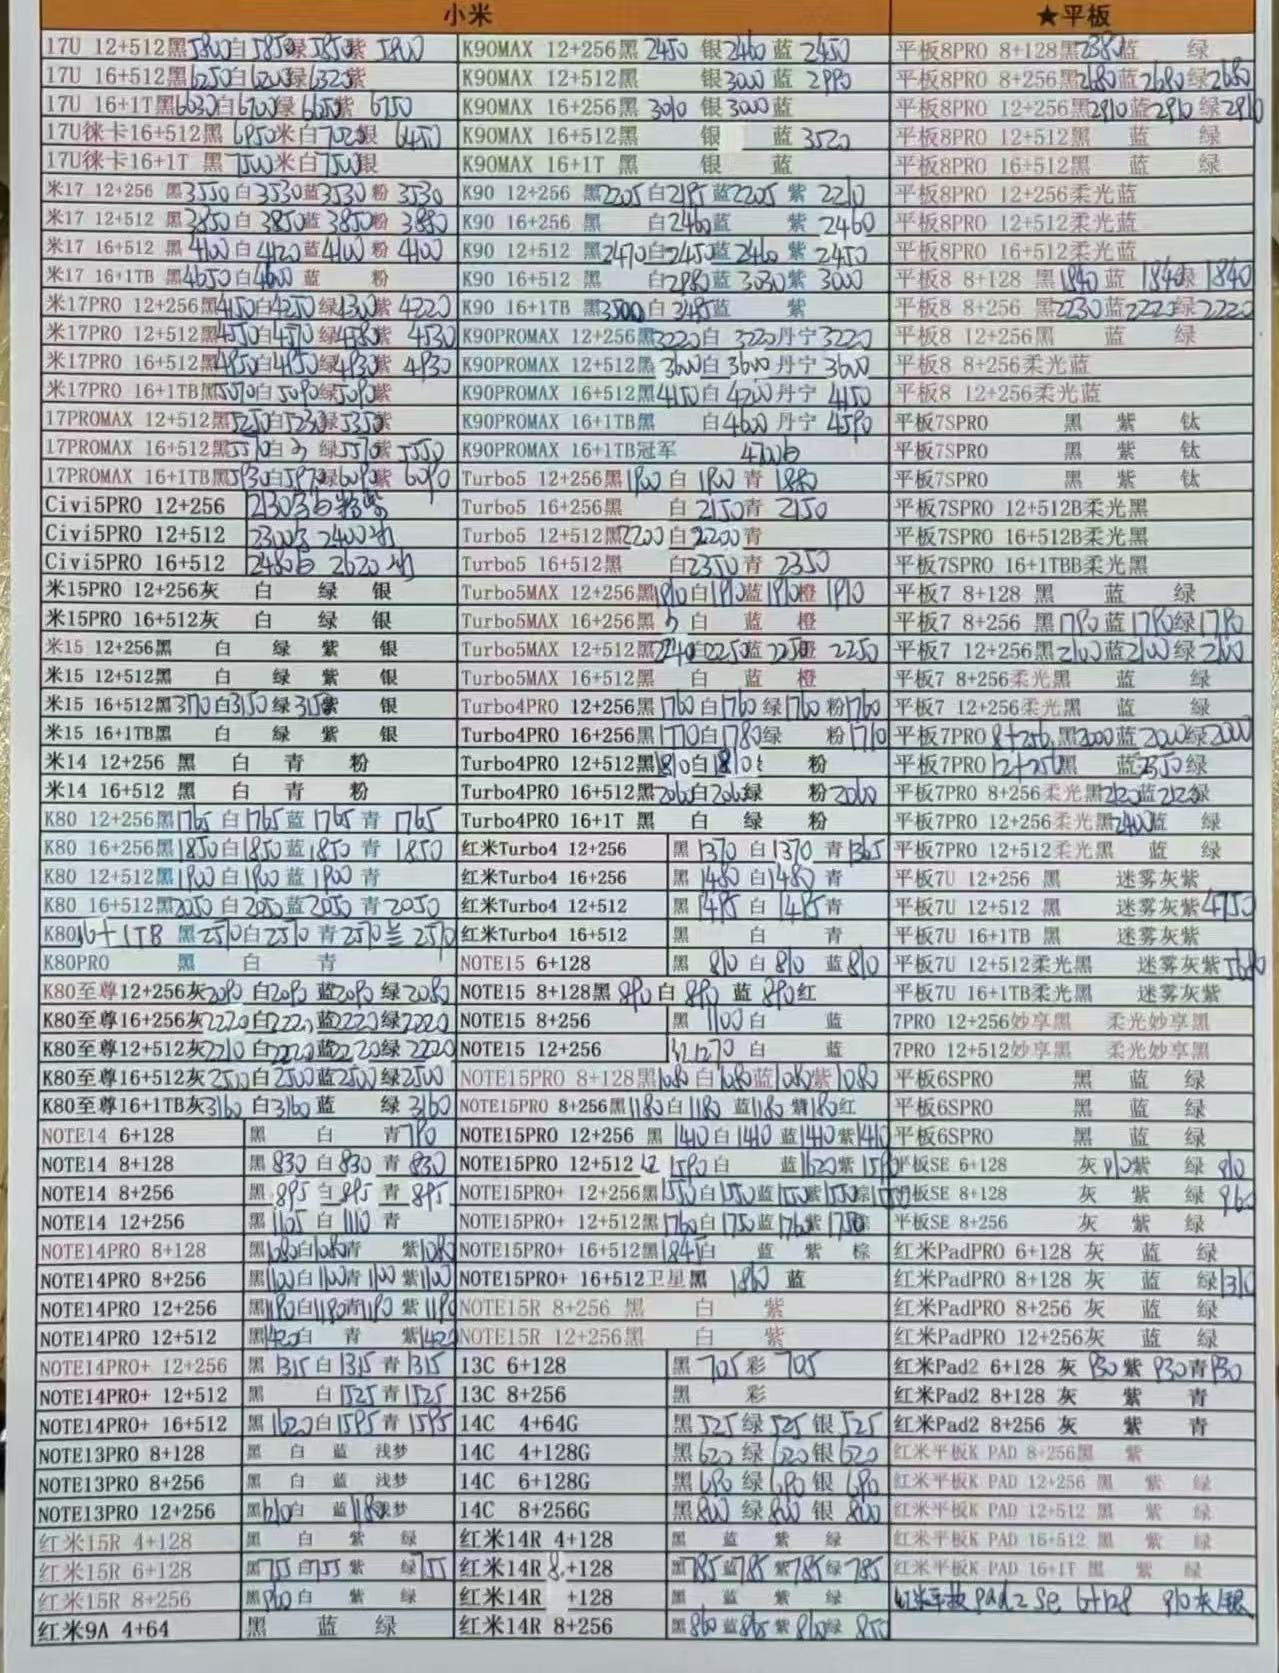 小米
17U 12+512黑5800白5850绿5850紫 5800
17U 16+512黑6250白6200绿6320紫
17U 16+1T黑6030白6700绿 6650紫 6750
17U徕卡16+512黑 6950米白7020银 6450
17U徕卡16+1T 黑 7500米白7500银
米17 12+256 黑3550白3530蓝3530粉 3530
米17 12+512 黑3850白3850蓝3850粉 3880
米17 16+512 黑4100白4120蓝4100粉 4100
米17 16+1TB 黑4650白4600 蓝 粉
米17PRO 12+256黑4150白4250绿4300紫 4220
米17PRO 12+512黑4550白4570绿4580紫 4530
米17PRO 16+512黑4950白4950绿4930紫 4930
米17PRO 16+1TB黑5070白5090绿5090紫
17PROMAX 12+512黑5250白5230绿5350紫
17PROMAX 16+512黑5570白 绿5570紫5550
17PROMAX 16+1TB黑5930白5970绿6090紫 6090
Civi5PRO 12+256 2130
Civi5PRO 12+512 2300 2400
Civi5PRO 16+512 2480白 2620
米15PRO 12+256灰 白 绿 银
米15PRO 16+512灰 白 绿 银
米15 12+256黑 白 绿 紫 银
米15 12+512黑 白 绿 紫 银
米15 16+512黑 白3150绿3150紫 银
米15 16+1TB黑 白 绿 紫 银
米14 12+256 黑 白 青 粉
米14 16+512 黑 白 青 粉
K80 12+256黑1765 白1765蓝 1765 青 1765
K80 16+256黑1850白1850蓝 1850 青 1850
K80 12+512黑1900白1900蓝 1900 青
K80 16+512黑2050白2050蓝2050 青2050
K80 16+1TB 黑2570白2570 青2570兰 2570
K80PRO 黑 白 青
K80至尊12+256灰2090 白2090 蓝2090 绿2080
K80至尊16+256灰2220白2220 蓝2220绿2220
K80至尊12+512灰2210白2220蓝2220绿 2220
K80至尊16+512灰2500白2500蓝2500 绿2500
K80至尊16+1TB灰3160 白3160 蓝 绿 3160
NOTE14 6+128 黑 白 青790
NOTE14 8+128 黑830 白830 青 830
NOTE14 8+256 黑895白895 青 895
NOTE14 12+256 黑1105 白1110 青
NOTE14PRO 8+128 黑1080白1080青 紫1080
NOTE14PRO 8+256 黑1100白1100青1100紫1100
NOTE14PRO 12+256 黑1190白1190青1190 紫1190
NOTE14PRO 12+512 黑1420白 青 紫1420
NOTE14PRO+ 12+256 黑 1315白1315青1315
NOTE14PRO+ 12+512 黑 白1525青1525
NOTE14PRO+ 16+512 黑1620白1595青1595
NOTE13PRO 8+128 黑 白 蓝 浅梦
NOTE13PRO 8+256 黑 白 蓝 浅梦
NOTE13PRO 12+256 黑 白 蓝1180浅梦
红米15R 4+128 黑 白 紫 绿
红米15R 6+128 黑755白755紫 绿755
红米15R 8+256 黑860白 紫 绿
红米9A 4+64 黑 蓝 绿
K90MAX 12+256黑 2450 银2460 蓝 2450
K90MAX 12+512黑 银3000 蓝 2990
K90MAX 16+256黑 3010 银3000蓝
K90MAX 16+512黑 银 蓝 3520
K90MAX 16+1T 黑 银 蓝
K90 12+256 黑2205白2195蓝2205 紫 2210
K90 16+256 黑 白2460蓝 紫 2460
K90 12+512 黑2470白2450蓝2460 紫 2450
K90 16+512 黑 白2980蓝3030紫 3000
K90 16+1TB 黑3500白3485蓝 紫
K90PROMAX 12+256黑3220白 3220丹宁3220
K90PROMAX 12+512黑3600白3600丹宁3600
K90PROMAX 16+512黑4150白4200丹宁4150
K90PROMAX 16+1TB黑 白4600丹宁4590
K90PROMAX 16+1TB冠军 4700白
Turbo5 12+256黑1900 白 1900青 1880
Turbo5 16+256黑 白2150青 2150
Turbo5 12+512黑2200白2200青
Turbo5 16+512黑 白2350青 2350
Turbo5MAX 12+256黑1910白1910蓝1910橙 1910
Turbo5MAX 16+256黑 白 蓝 橙
Turbo5MAX 12+512黑2240白2250蓝2250橙 2250
Turbo5MAX 16+512黑 白 蓝 橙
Turbo4PRO 12+256黑1760白1760绿1760粉1760
Turbo4PRO 16+256黑1770白1780绿 粉1710
Turbo4PRO 12+512黑1810白1810绿 粉
Turbo4PRO 16+512黑2060白2060绿 粉2060
Turbo4PRO 16+1T 黑 白 绿 粉
红米Turbo4 12+256 黑1370 白1370 青1365
红米Turbo4 16+256 黑1480白1480青
红米Turbo4 12+512 黑1495白1495青
红米Turbo4 16+512 黑 白 青
NOTE15 6+128 黑 810白810 蓝810
NOTE15 8+128黑 890白 890 蓝 890红
NOTE15 8+256 黑 1100白 蓝
NOTE15 12+256 红1270 白 蓝
NOTE15PRO 8+128黑1080白1080蓝1080紫1080
NOTE15PRO 8+256黑1180白1180 蓝1180紫1180红
NOTE15PRO 12+256 黑1410白1410 蓝1410紫1410
NOTE15PRO 12+512红 1590白 蓝1620紫1590
NOTE15PRO+ 12+256黑1550白1550蓝1550紫1550棕1550
NOTE15PRO+ 12+512黑1760白1750蓝1760紫1750棕
NOTE15PRO+ 16+512黑1845白 蓝 紫 棕
NOTE15PRO+ 16+512卫星黑 1860 蓝
NOTE15R 8+256 黑 白 紫
NOTE15R 12+256黑 白 紫
13C 6+128 黑 705彩 705
13C 8+256 黑 彩
14C 4+64G 黑525绿525银525
14C 4+128G 黑620绿620银620
14C 6+128G 黑690绿690银 690
14C 8+256G 黑800绿800银 800
红米14R 4+128 黑 蓝 紫 绿
红米14R 8+128 黑785蓝785紫785绿785
红米14R +128 黑 蓝 紫 绿
红米14R 8+256 黑860蓝865紫860绿 850
★平板
平板8PRO 8+128黑2380蓝 绿
平板8PRO 8+256黑2680蓝2680绿2680
平板8PRO 12+256黑2910蓝2910 绿2910
平板8PRO 12+512黑 蓝 绿
平板8PRO 16+512黑 蓝 绿
平板8PRO 12+256柔光蓝
平板8PRO 12+512柔光蓝
平板8PRO 16+512柔光蓝
平板8 8+128 黑1840蓝 1840绿1840
平板8 8+256 黑2230蓝2220绿2220
平板8 12+256黑 蓝 绿
平板8 8+256柔光蓝
平板8 12+256柔光蓝
平板7SPRO 黑 紫 钛
平板7SPRO 黑 紫 钛
平板7SPRO 黑 紫 钛
平板7SPRO 12+512B柔光黑
平板7SPRO 16+512B柔光黑
平板7SPRO 16+1TBB柔光黑
平板7 8+128 黑 蓝 绿
平板7 8+256 黑1790蓝1790绿1790
平板7 12+256黑2100蓝2100绿2100
平板7 8+256柔光黑 蓝 绿
平板7 12+256柔光黑 蓝 绿
平板7PRO 8+256黑2000蓝2000绿2000
平板7PRO 12+256黑 蓝2350绿
平板7PRO 8+256柔光黑2120蓝2120绿
平板7PRO 12+256柔光黑2400蓝 绿
平板7PRO 12+512柔光黑 蓝 绿
平板7U 12+256 黑 迷雾灰紫
平板7U 12+512 黑 迷雾灰紫4750
平板7U 16+1TB 黑 迷雾灰紫
平板7U 12+512柔光黑 迷雾灰紫
平板7U 16+1TB柔光黑 迷雾灰紫
7PRO 12+256妙享黑 柔光妙享黑
7PRO 12+512妙享黑 柔光妙享黑
平板6SPRO 黑 蓝 绿
平板6SPRO 黑 蓝 绿
平板6SPRO 黑 蓝 绿
平板SE 6+128 灰910紫 绿 910
平板SE 8+128 灰 紫 绿 960
平板SE 8+256 灰 紫 绿
红米PadPRO 6+128 灰 蓝 绿
红米PadPRO 8+128 灰 蓝 绿1310
红米PadPRO 8+256 灰 蓝 绿
红米PadPRO 12+256灰 蓝 绿
红米Pad2 6+128 灰 930紫 930青930
红米Pad2 8+128 灰 紫 青
红米Pad2 8+256 灰 紫 青
红米平板K PAD 8+256黑 紫
红米平板K PAD 12+256 黑 紫 绿
红米平板K PAD 12+512 黑 紫 绿
红米平板K PAD 16+512 黑 紫 绿
红米平板K PAD 16+1T 黑 紫 绿
红米平板Pad2 Se 6+128 910灰/银